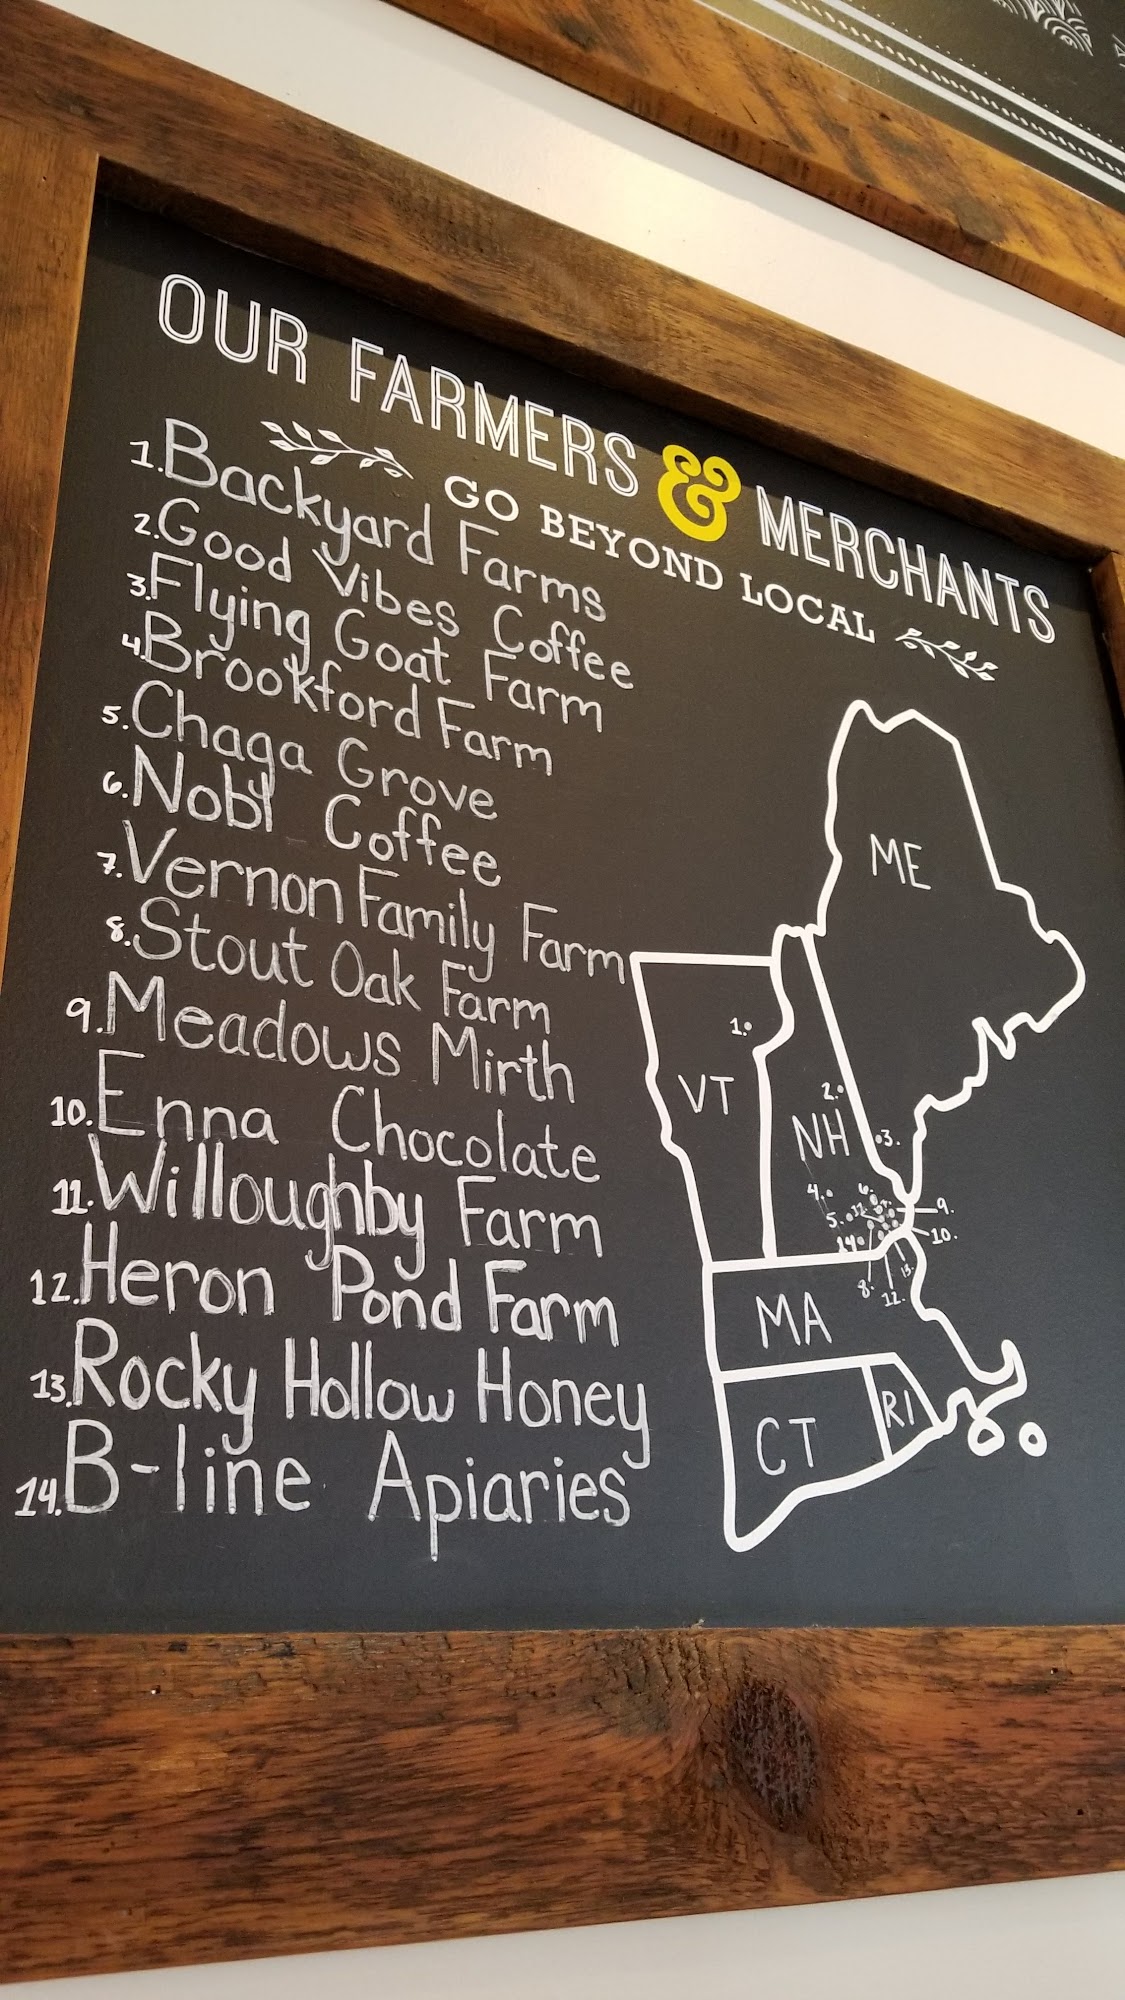 OUR FARMERS & MERCHANTS
GO BEYOND LOCAL
1. Backyard Farms
2. Good Vibes Coffee
3. Flying Goat Farm
4. Brookford Farm
5. Chaga Grove
6. Nobl Coffee
7. Vernon Family Farm
8. Stout Oak Farm
9. Meadows Mirth
10. Enna Chocolate
11. Willoughby Farm
12. Heron Pond Farm
13. Rocky Hollow Honey
14. B-line Apiaries
ME
1.
VT
2.
NH
3.
4.
6.
5.
9.
10.
14.
13.
8.
12.
MA
CT
RI